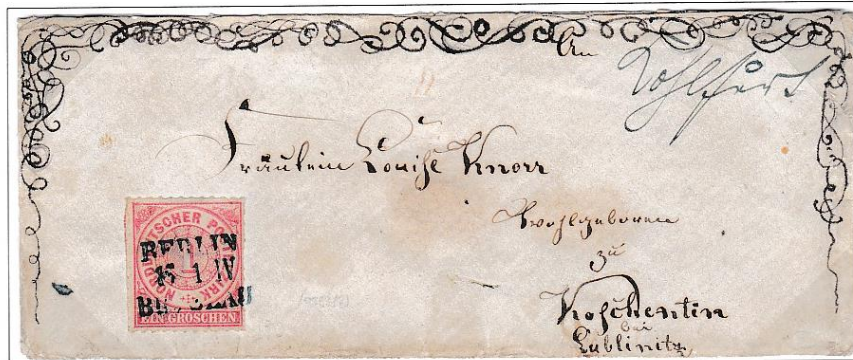 An
Kohlfurt
Fräulein Louise Knorr
Wohlgeboren
zu
Koschentin
bei
Lublinitz
NORDDEUTSCHER POSTBEZIRK
1
EIN GROSCHEN.
BERLIN
15 1 IV
BRESLAU